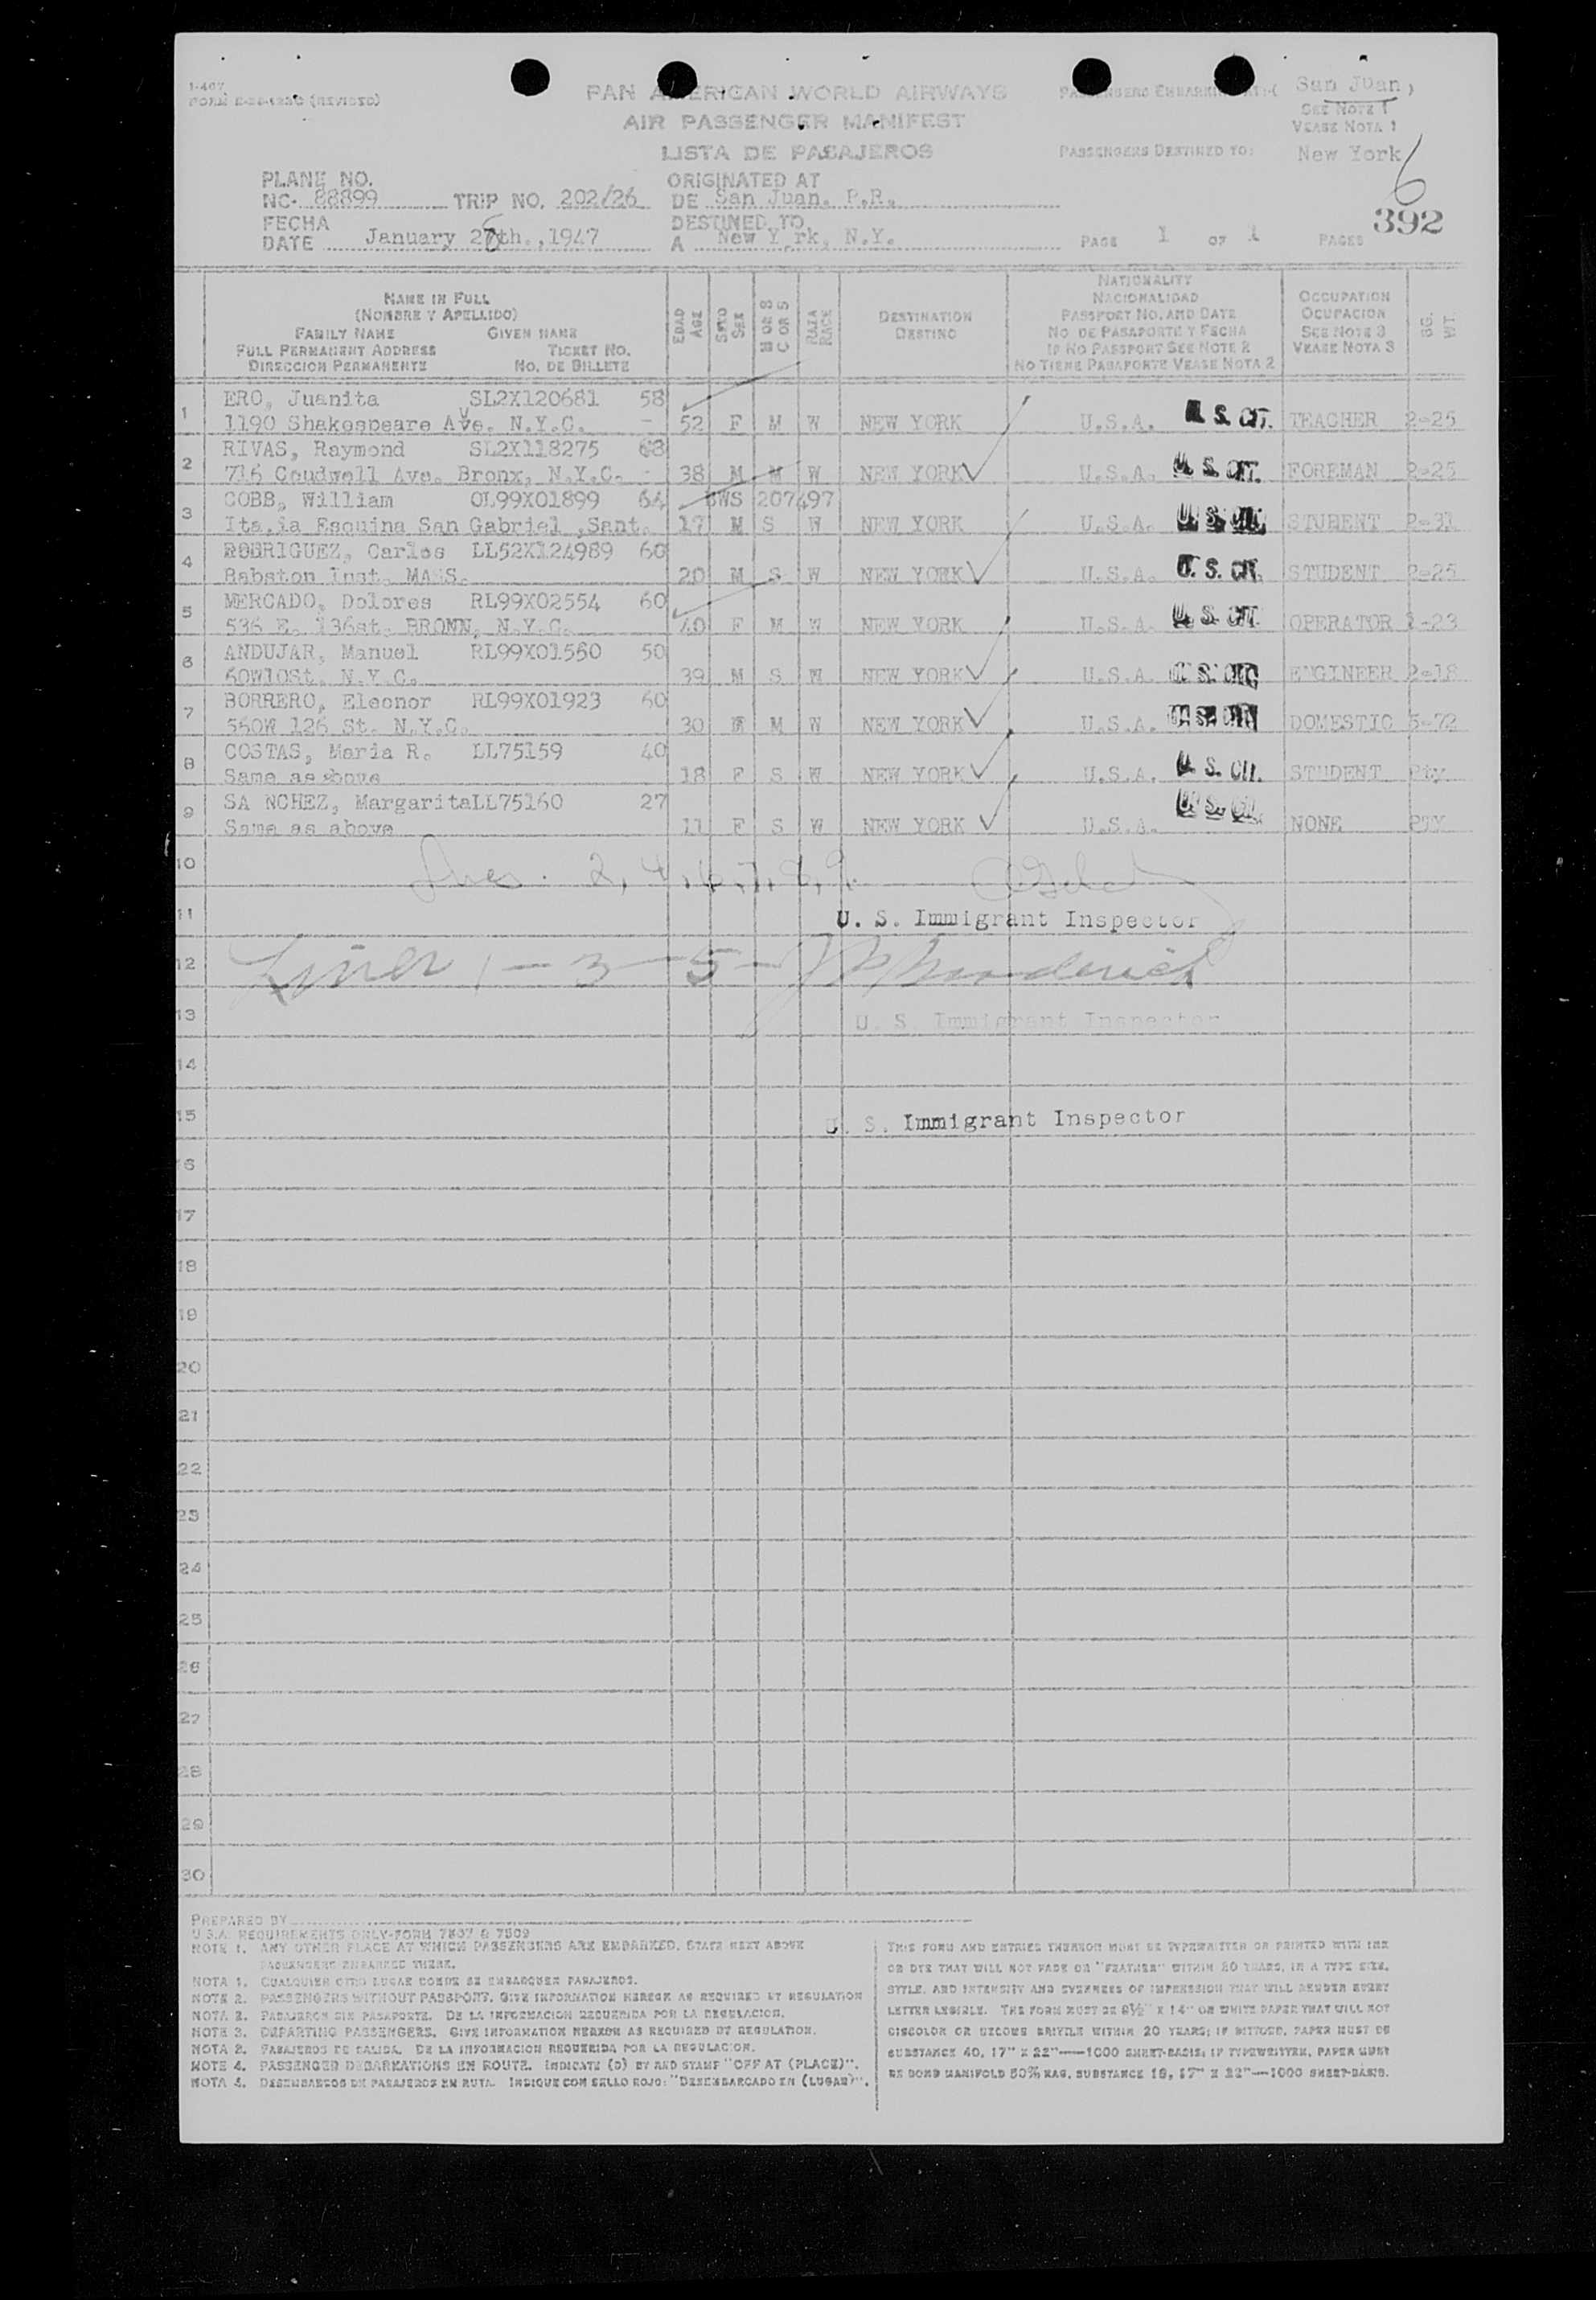 I-407
FORM (REVISED)
PAN AMERICAN WORLD AIRWAYS
AIR PASSENGER MANIFEST
LISTA DE PASAJEROS
PASSENGERS EMBARKING AT: ( San Juan )
SEE NOTE 1
VEASE NOTA 1
PASSENGERS DESTINED TO: New York
6
392
PLANE NO.
NC- 88899 TRIP NO. 202/26
ORIGINATED AT
DE San Juan. P.R.
FECHA
DATE January 26th.,1947
DESTINED TO
A New Y rk, N.Y.
PAGE 1 OF 1 PAGES
NAME IN FULL
(NOMBRE Y APELLIDO)
FAMILY NAME GIVEN NAME
FULL PERMANENT ADDRESS TICKET NO.
DIRECCION PERMANENTE NO. DE BILLETE
EDAD AGE
SEXO SEX
M OR S
C OR S
RAZA RACE
DESTINATION
DESTINO
NATIONALITY
NACIONALIDAD
PASSPORT NO. AND DATE
NO. DE PASAPORTE Y FECHA
IF NO PASSPORT SEE NOTE 2
NO TIENE PASAPORTE VEASE NOTA 2
OCCUPATION
OCUPACION
SEE NOTE 3
VEASE NOTA 3
BG. WT.
1 ERO, Juanita SL2X120681 58
1190 Shakespeare Ave. N.Y.C. - 52 F M W NEW YORK U.S.A. U. S. CIT. TEACHER 2-25
2 RIVAS, Raymond SL2X118275 63
716 Coudwell Ave. Bronx, N.Y.C. - 38 M M W NEW YORK U.S.A. U. S. CIT. FOREMAN 2-25
3 COBB, William OL99X01899 64 BWS 207497
Ita.ia Esquina San Gabriel ,Sant. 17 M S W NEW YORK U.S.A. U. S. CIT. STUDENT 2-31
4 RODRIGUEZ, Carlos LL52X124989 60
Babston Inst. MASS. 20 M S W NEW YORK U.S.A. U. S. CIT. STUDENT 2-25
5 MERCADO, Dolores RL99X02554 60
536 E. 136st. BRONX, N.Y.C. 40 F M W NEW YORK U.S.A. U. S. CIT. OPERATOR 1-23
6 ANDUJAR, Manuel RL99X01560 50
60W10St. N.Y.C. 39 M S W NEW YORK U.S.A. U. S. CIT. ENGINEER 2-18
7 BORRERO, Eleonor RL99X01923 60
560W 126 St. N.Y.C. 30 F M W NEW YORK U.S.A. U. S. CIT. DOMESTIC 5-72
8 COSTAS, Maria R. LL75159 40
Same as above 18 F S W NEW YORK U.S.A. U. S. CIT. STUDENT Pty
9 SA NCHEZ, Margarita LL75160 27
Same as above 11 F S W NEW YORK U.S.A. U. S. CIT. NONE PTY
10 Lines. 2, 4, 6, 7, 8, 9.
11 U. S. Immigrant Inspector
12 Lines 1 - 3 - 5 -
13 U. S. Immigrant Inspector
14
15 U. S. Immigrant Inspector
16
17
18
19
20
21
22
23
24
25
26
27
28
29
30
PREPARED BY
U.S.A. REQUIREMENTS ONLY-FORM 7507 & 7509
NOTE 1. ANY OTHER PLACE AT WHICH PASSENGERS ARE EMBARKED, STATE NEXT ABOVE
PASSENGERS EMBARKED THERE.
NOTA 1. CUALQUIER OTRO LUGAR DONDE SE EMBARQUEN PASAJEROS.
NOTE 2. PASSENGERS WITHOUT PASSPORT. GIVE INFORMATION HEREON AS REQUIRED BY REGULATION
NOTA 2. PASAJEROS SIN PASAPORTE. DE LA INFORMACION REQUERIDA POR LA REGULACION.
NOTE 3. DEPARTING PASSENGERS. GIVE INFORMATION HEREON AS REQUIRED BY REGULATION.
NOTA 3. PASAJEROS DE SALIDA. DE LA INFORMACION REQUERIDA POR LA REGULACION.
NOTE 4. PASSENGER DEBARKATIONS EN ROUTE. INDICATE (D) BY RED STAMP "OFF AT (PLACE)".
NOTA 4. DESEMBARCOS DE PASAJEROS EN RUTA. INDIQUE CON SELLO ROJO: "DESEMBARCADO EN (LUGAR)".
THIS FORM AND ENTRIES THEREON MUST BE TYPEWRITTEN OR PRINTED WITH INK
OR DYE THAT WILL NOT FADE OR "FEATHER" WITHIN 20 YEARS, IN A TYPE SIZE,
STYLE, AND INTENSITY AND EVENNESS OF IMPRESSION THAT WILL RENDER EVERY
LETTER LEGIBLE. THE FORM MUST BE 8½" X 14" ON WHITE PAPER THAT WILL NOT
DISCOLOR OR BECOME BRITTLE WITHIN 20 YEARS; IF DITTOED, PAPER MUST BE
SUBSTANCE 40, 17" X 22"—1000 SHEET-BASIS; IF TYPEWRITTEN, PAPER MUST
BE BOND MANIFOLD 50% RAG, SUBSTANCE 18, 17" X 22"—1000 SHEET-BASIS.